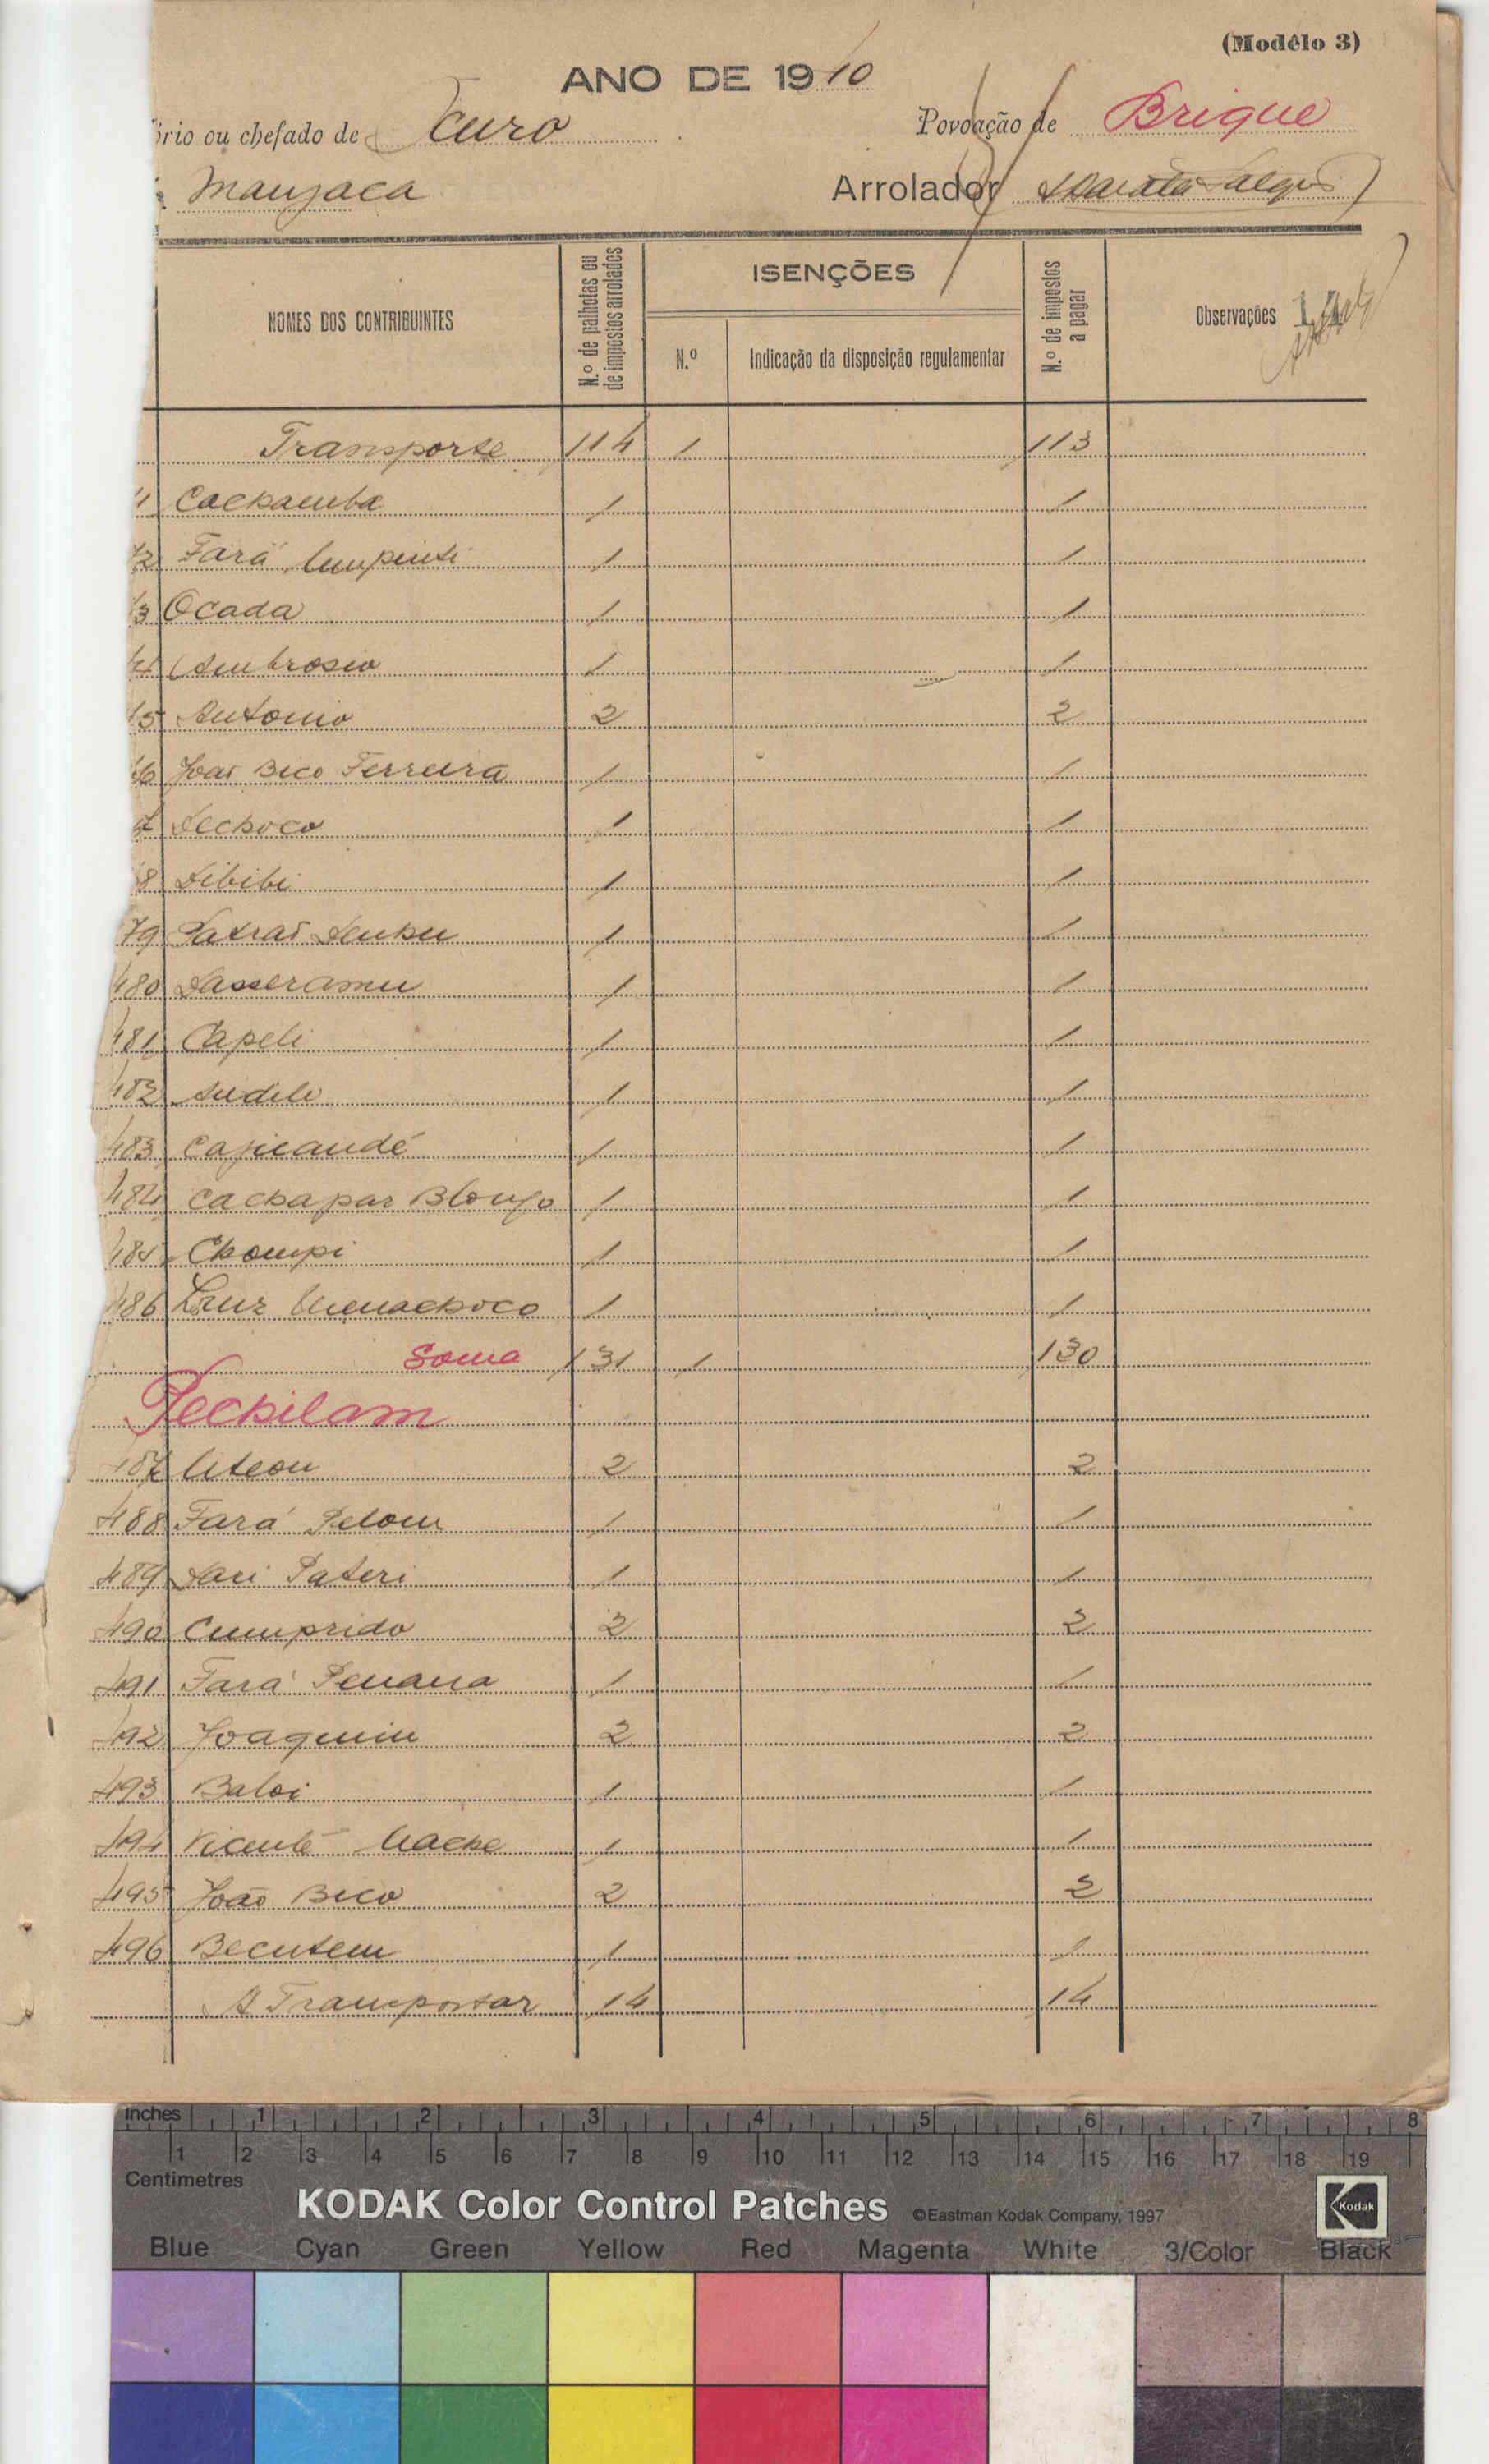 (Modêlo 3)
ANO DE 1910
ório ou chefado de Churo Povoação de Brique
Manjaca Arrolador
NOMES DOS CONTRIBUINTES N.º de palhotas ou de impostos arrolados ISENÇÕES N.º Indicação da disposição regulamentar N.º de impostos a pagar Observações
Transporte 114 1 113
1 Cachamba 1 1
72 Fará 1 1
73 Ocada 1 1
74 Ambrosio 1 1
75 Antonio 2 2
76 João Bico Ferreira 1 1
7 Dechoco 1 1
8 Dibibi 1 1
79 1 1
480 Dasseramu 1 1
481 Capeli 1 1
482 Audile 1 1
483 Cajicandé 1 1
484 Cachapar Blonjo 1 1
485 Chompi 1 1
486 Luiz 1 1
Soma 131 1 130
Pechilam
487 Uteou 2 2
488 Fará Pelom 1 1
489 Dari Pateri 1 1
490 Cumprido 2 2
491 Fará Penana 1 1
492 Joaquim 2 2
493 Baloi 1 1
494 Vicente Uache 1 1
495 João Bico 2 2
496 Becutem 1 1
A Transportar 14 14
inches 1 2 3 4 5 6 7 8
1 2 3 4 5 6 7 8 9 10 11 12 13 14 15 16 17 18 19
Centimetres
KODAK Color Control Patches ©Eastman Kodak Company, 1997 Kodak
Blue Cyan Green Yellow Red Magenta White 3/Color Black